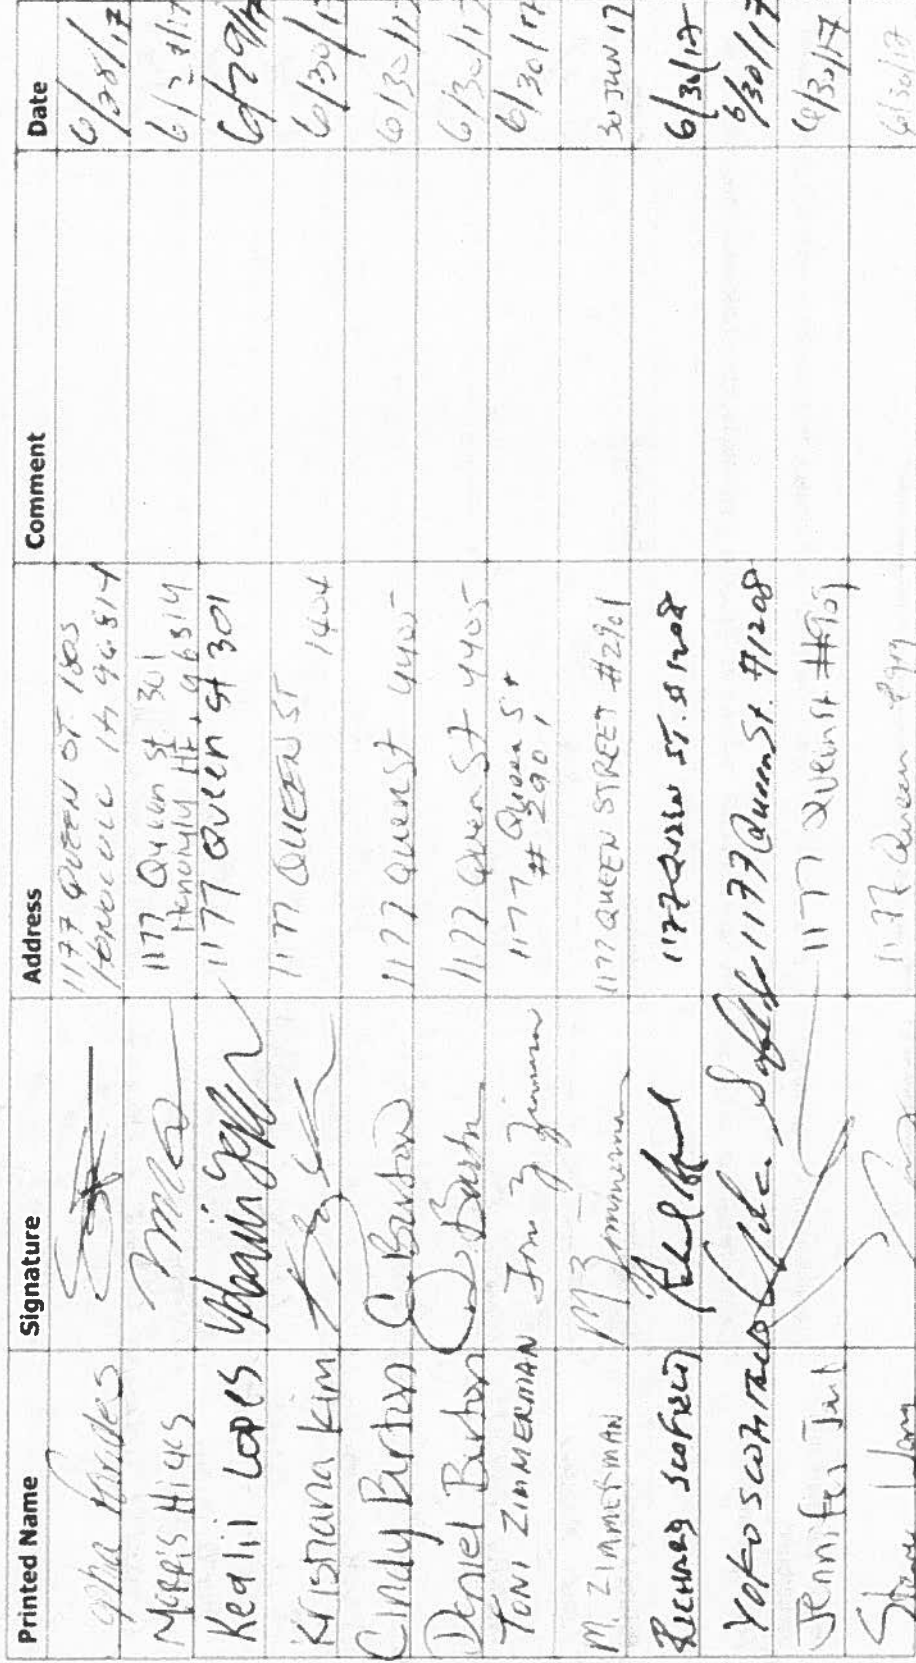 Printed Name Signature Address Comment Date
1177 QUEEN ST 6/28/17
96814
Morris Hicks 1177 Queen St 301
Honolulu HI, 96814
Kealii Lopes 1177 Queen St 301 6/29/17
Kristiana Kim 1177 QUEEN ST 1404 6/30/17
Cindy Burton C Burton 1177 Queen St 4405 6/30/17
Daniel Burton D. Burton 1177 Queen St 4405 6/30/17
TONI ZIMMERMAN Toni Zimmerman 1177 Queen St 6/30/17
# 2901
M. ZIMMERMAN M Zimmerman 1177 QUEEN STREET #2901 30 JUN 17
RICHARD SCOFIELD 1177 QUEEN ST. # 1208 6/30/17
YOKO SCOFIELD 1177 Queen St. #1208 6/30/17
Jennifer 1177 Queen St # 6/30/17
1177 Queen 6/30/17